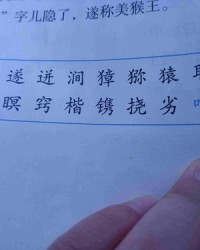 ”字儿隐了，遂称美猴王。
遂 迸 涧 獐 猕 猿
瞑 窍 楷 镌 挠 劣